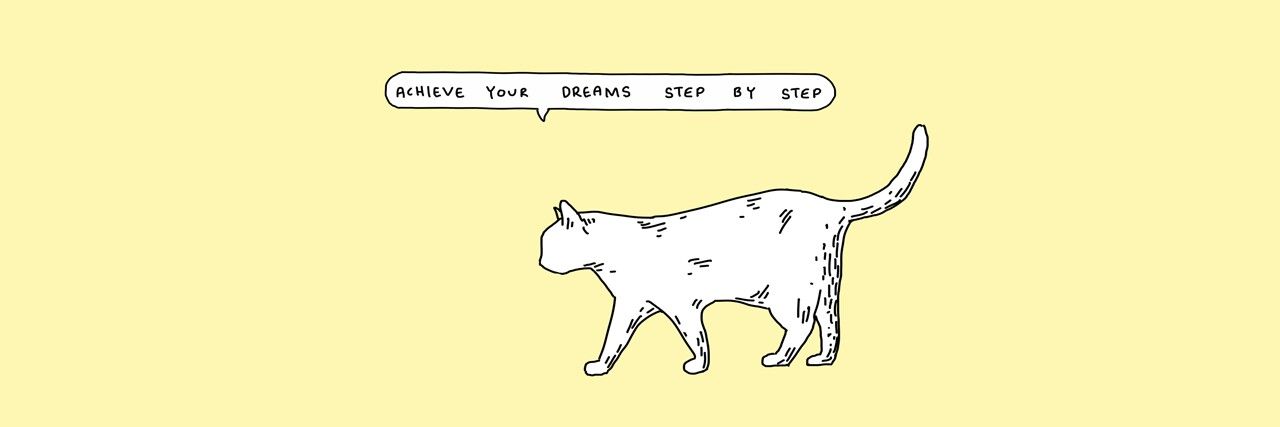 ACHIEVE YOUR DREAMS STEP BY STEP